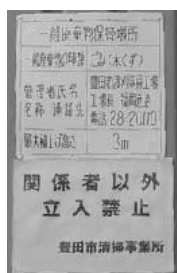 一般廃棄物保管場所
一般廃棄物の種類 ごみ(木くず)
管理者氏名
名称 連絡先
工場長
電話28-2000
最大積上げ高さ 3m
関係者以外
立入禁止
豊田市清掃事業所